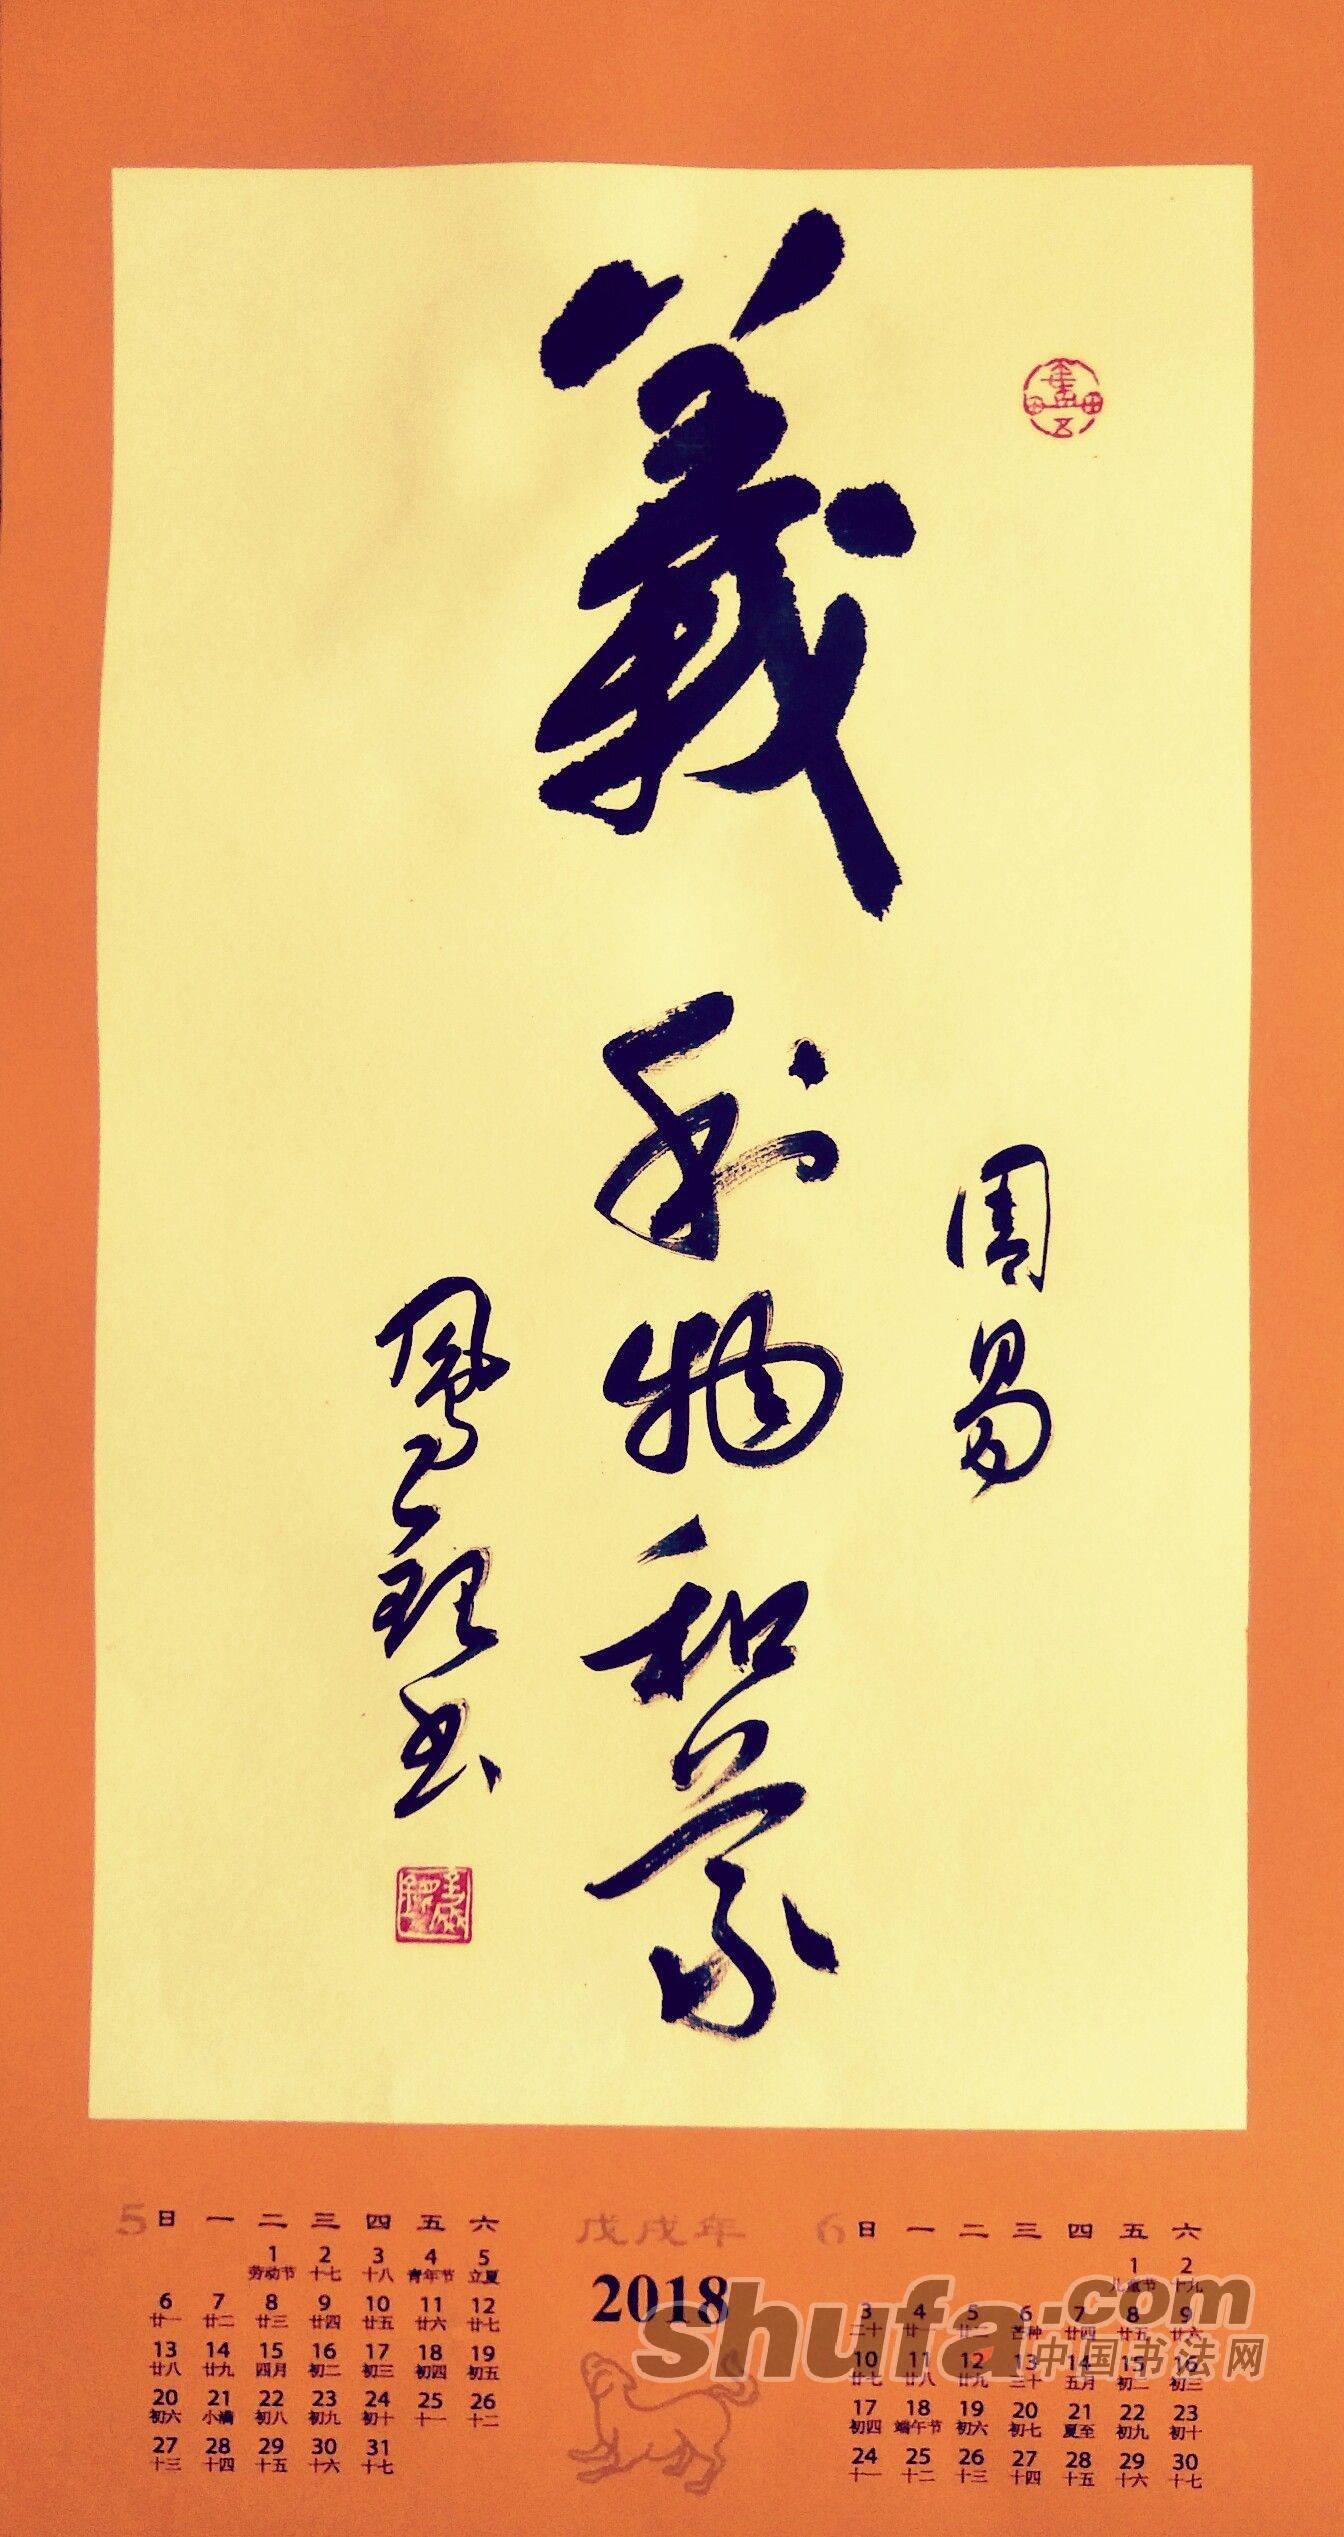 周易
義
利物和義
鳳 书
5 日 一 二 三 四 五 六
1 2 3 4 5
劳动节 十七 十八 青年节 立夏
6 7 8 9 10 11 12
廿一 廿二 廿三 廿四 廿五 廿六 廿七
13 14 15 16 17 18 19
廿八 廿九 四月 初二 初三 初四 初五
20 21 22 23 24 25 26
初六 小满 初八 初九 初十 十一 十二
27 28 29 30 31
十三 十四 十五 十六 十七
戊戌年
2018
6 日 一 二 三 四 五 六
1 2
儿童节 十九
3 4 5 6 7 8 9
二十 廿一 廿二 芒种 廿四 廿五 廿六
10 11 12 13 14 15 16
廿七 廿八 廿九 三十 五月 初二 初三
17 18 19 20 21 22 23
初四 端午节 初六 初七 夏至 初九 初十
24 25 26 27 28 29 30
十一 十二 十三 十四 十五 十六 十七
shufa.com
中国书法网